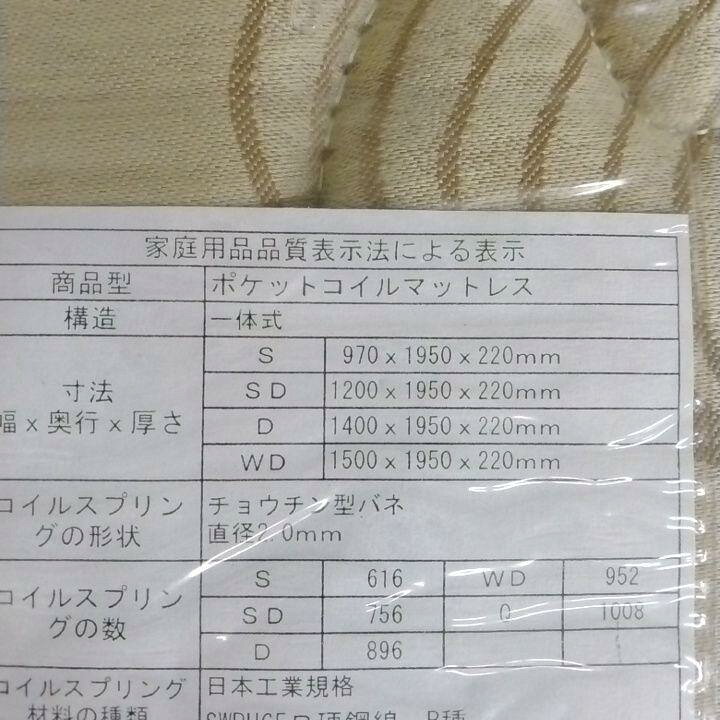 家庭用品品質表示法による表示
商品型 ポケットコイルマットレス
構造 一体式
寸法
幅x奥行x厚さ
S 970x1950x220mm
SD 1200x1950x220mm
D 1400x1950x220mm
WD 1500x1950x220mm
コイルスプリン
グの形状
チョウチン型バネ
直径2.0mm
コイルスプリン
グの数
S 616 WD 952
SD 756 Q 1008
D 896
コイルスプリング
材料の種類
日本工業規格
硬鋼線 B種